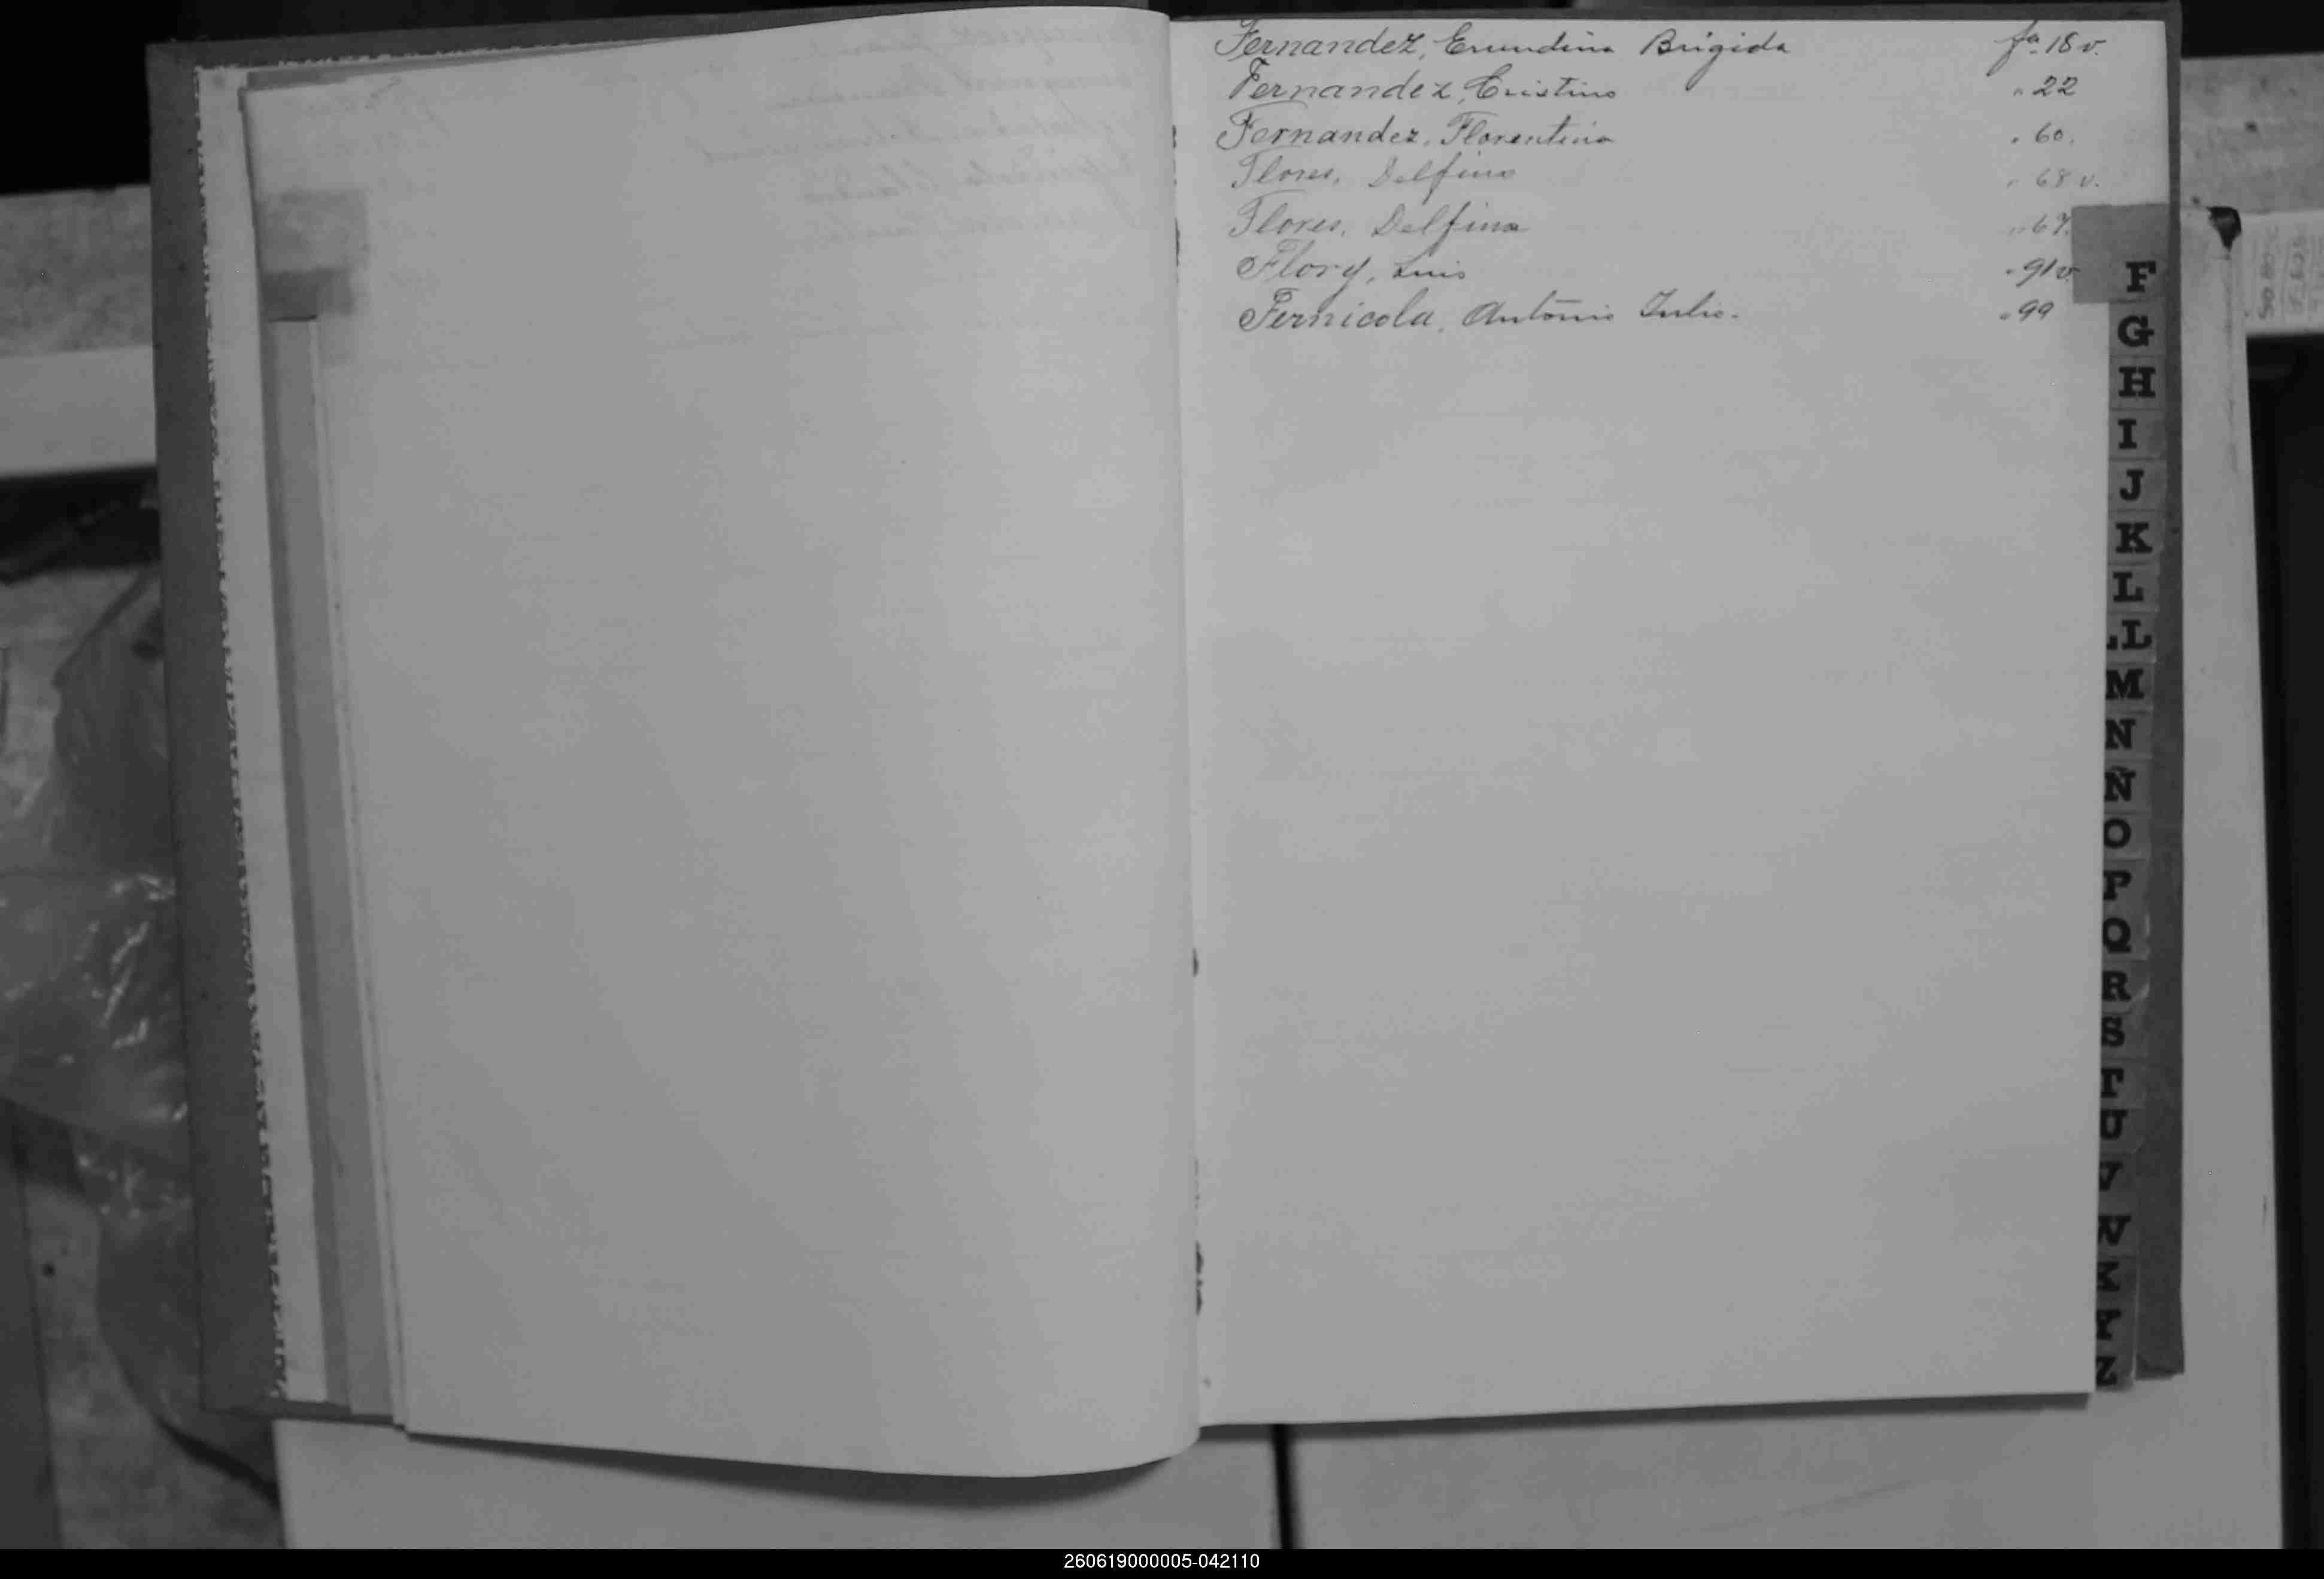 Fernandez, Erundina Brigida fa. 18 v.
Fernandez, Cristino " 22
Fernandez, Florentina " 60.
Flores, Delfino " 68 v.
Flores, Delfina " 67.
Flory, Luis " 91 v.
Fernicola, Antonio Julio. " 99
F
G
H
I
J
K
L
LL
M
N
Ñ
O
P
Q
R
S
T
U
V
W
X
Y
Z
260619000005-042110